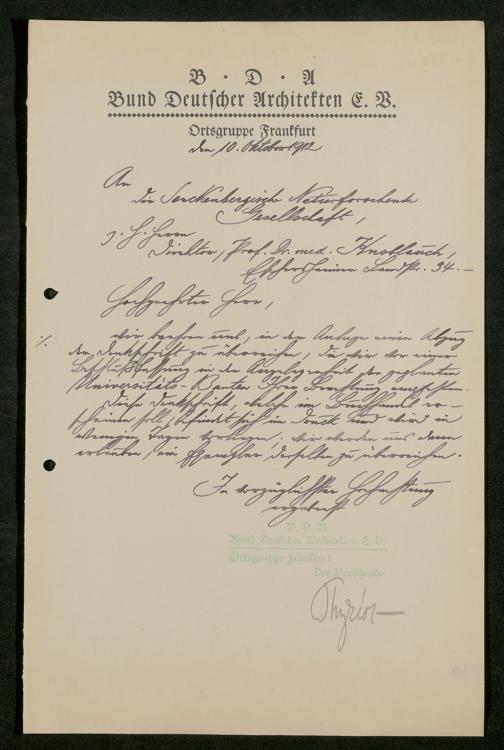 B · D · A
Bund Deutscher Architekten E. V.
Ortsgruppe Frankfurt
den 10. Oktober 1912
An
die Senckenbergische Naturforschende
Gesellschaft,
z. H. Herrn
Direktor, Prof. Dr. med. Knoblauch,
Eschersheimer Landstr. 34. –
Hochgeehrter Herr,
wir beehren uns, in der Anlage einen Abzug
der Denkschrift zu überreichen, die wir vor einer
Beschlußfassung in der Angelegenheit der geplanten
Universitäts-Bauten Ihrer Beachtung empfehlen.
Diese Denkschrift, welche im Buchhandel er-
scheinen soll, befindet sich in Druck und wird in
wenigen Tagen vorliegen; wir werden uns dann
erlauben, ein Exemplar derselben zu überreichen.
In vorzüglichster Hochachtung
ergebenst
B. D. A.
Bund Deutscher Architekten E. V.
Ortsgruppe Frankfurt
Der Vorsitzende
Thyriot